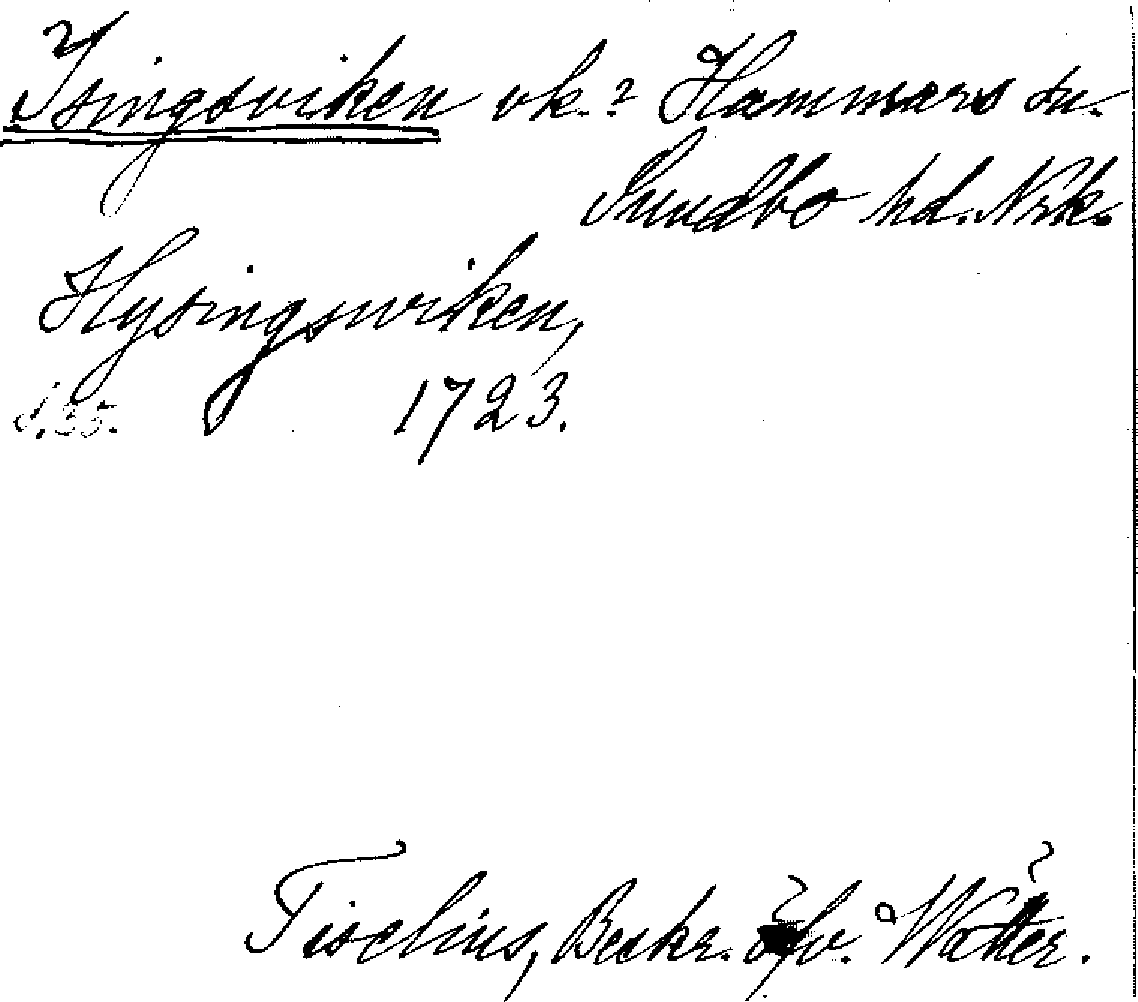 Isingsviken vk.? Hammars sn.
Sundbo hd. Nrk.
Hysingswiken,
s. 35. 1723.
Tiselius, Beskr. öfv. Wätter.